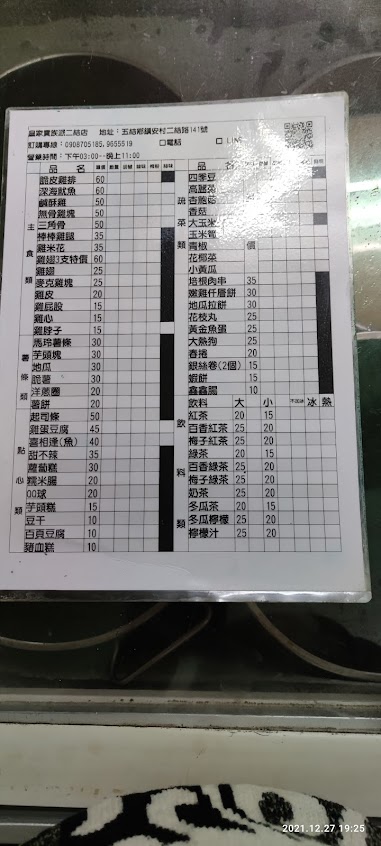 皇家貴族派二結店 地址：五結鄉鎮安村二結路141號
訂購專線：0908705185，9655519 □電話 □LINE
營業時間：下午03:00--晚上11:00
品 名
主食類
脆皮雞排 60
深海魷魚 60
鹹酥雞 50
無骨雞塊 50
三角骨 50
棒棒雞腿 35
雞米花 35
雞翅3支特價 60
雞翅 25
麥克雞塊 25
雞皮 20
雞屁股 15
雞心 15
雞脖子 15
薯條類
馬玲薯條 30
芋頭塊 30
地瓜 30
脆薯 30
洋蔥圈 20
薯餅 20
點心類
起司條 50
雞蛋豆腐 45
喜相逢(魚) 40
甜不辣 35
蘿蔔糕 30
糯米腸 20
QQ球 20
芋頭糕 15
豆干 10
百頁豆腐 10
豬血糕 10
品 名
蔬菜類
四季豆
高麗菜
杏鮑菇
香菇
大玉米
玉米筍
青椒 價
花椰菜
小黃瓜
培根肉串 35
嫩雞仟層餅 30
地瓜拉餅 30
花枝丸 25
黃金魚蛋 25
大熱狗 25
春捲 20
銀絲卷(2個) 15
蝦餅 15
鑫鑫腸 10
飲料 大 小 冰 熱
飲料類
紅茶 20 15
百香紅茶 25 20
梅子紅茶 25 20
綠茶 20 15
百香綠茶 25 20
梅子綠茶 25 20
奶茶 25 20
冬瓜茶 20 15
冬瓜檸檬 25 20
檸檬汁 25 20
2021.12.27 19:25